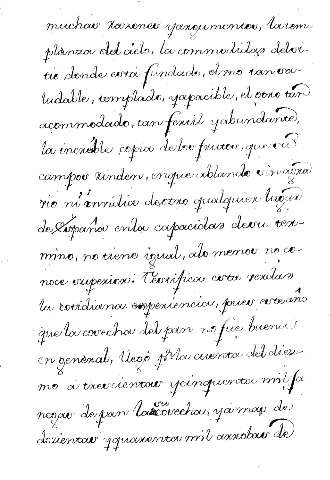 muchas razones yargumentos, latem
planza del cielo, la commodidas delsi-
tio donde está fundado, el mo tan sa-
ludable, templado, yapacible, el otro tan
acommodado, tan fertil yabundante,
la increible copia delos frutos, que sus
campos rinden, enque ablando sin agra
vio ni invidia de otro qualquier lugar
de España enla capacidas desu ter-
mino, no tiene igual, alo menos no co-
noce superior: Testifica esta verdas
la cotidiana experiencia, pues este año
que la cosecha del pan no fue buena
en general, llegó por la cuenta del diez-
mo a trescientas ycinquenta mil fa
negas de pan la su cosecha, ya mas de
dozientas yquarenta mil arrobas de